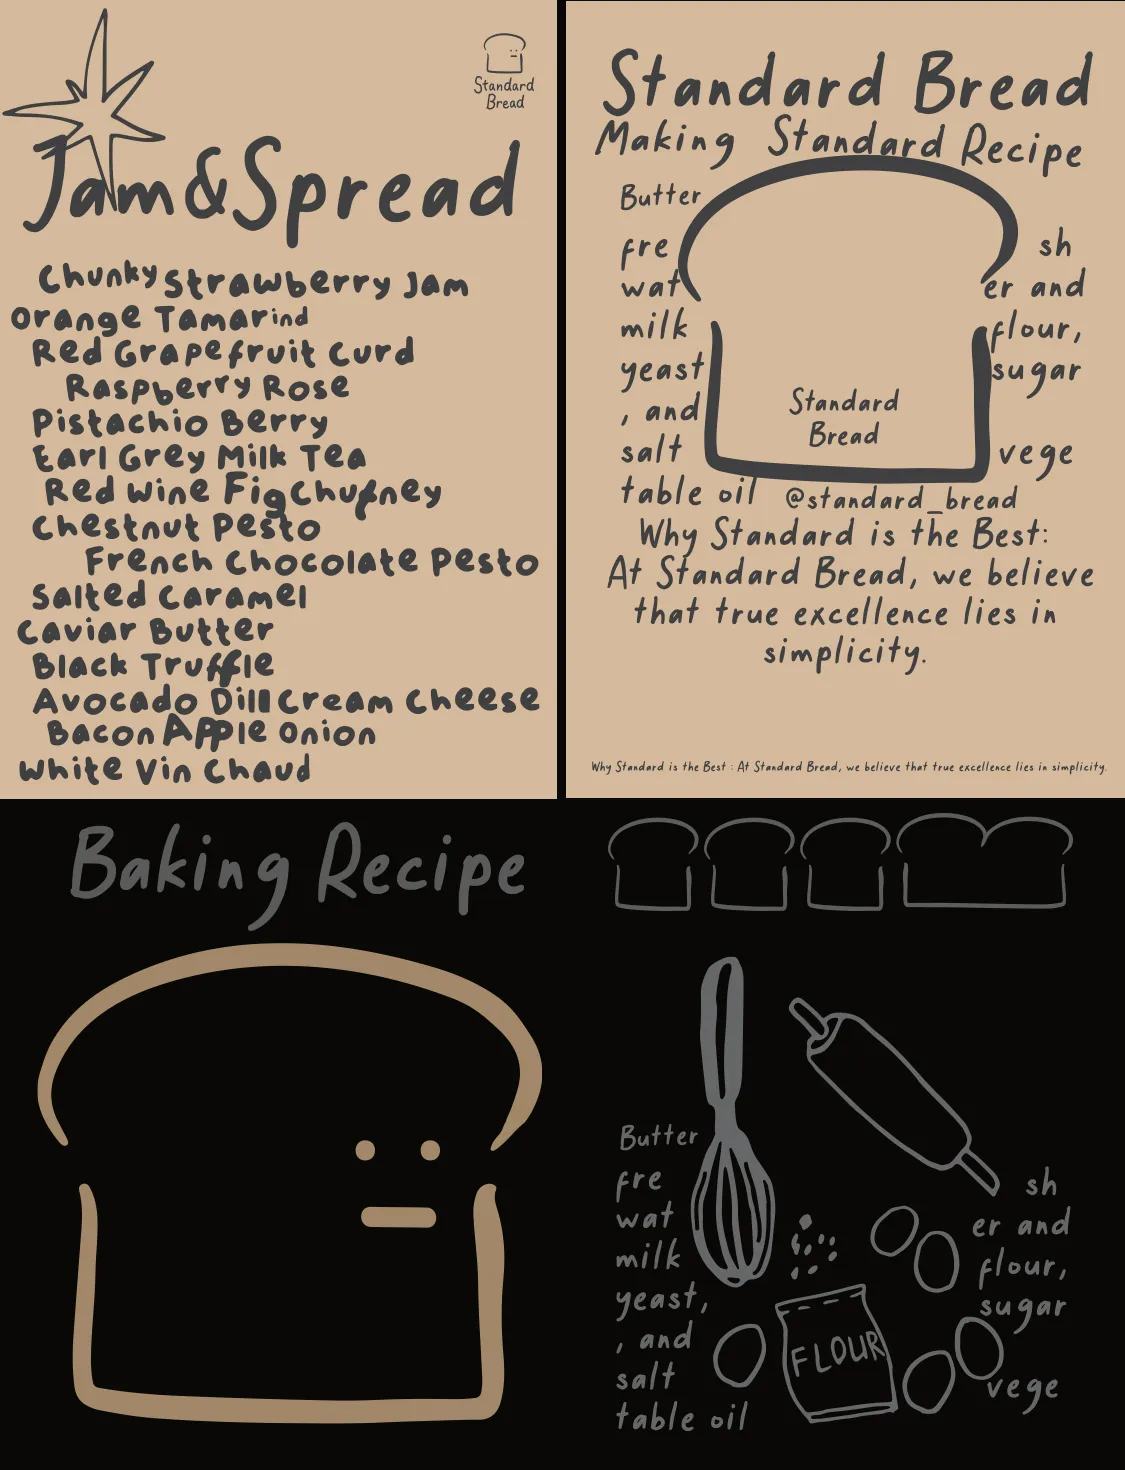 Standard
Bread
Jam&Spread
Chunky Strawberry Jam
Orange Tamarind
Red Grapefruit Curd
Raspberry Rose
Pistachio Berry
Earl Grey Milk Tea
Red Wine Fig Chutney
Chestnut Pesto
French Chocolate Pesto
Salted Caramel
Caviar Butter
Black Truffle
Avocado Dill Cream Cheese
Bacon Apple Onion
White Vin Chaud
Standard Bread
Making Standard Recipe
Butter
fre sh
wat er and
milk flour,
yeast sugar
, and
salt vege
table oil
Standard
Bread
@standard_bread
Why Standard is the Best:
At Standard Bread, we believe
that true excellence lies in
simplicity.
Why Standard is the Best : At Standard Bread, we believe that true excellence lies in simplicity.
Baking Recipe
Butter
fre sh
wat er and
milk flour,
yeast, sugar
, and
salt vege
table oil
FLOUR